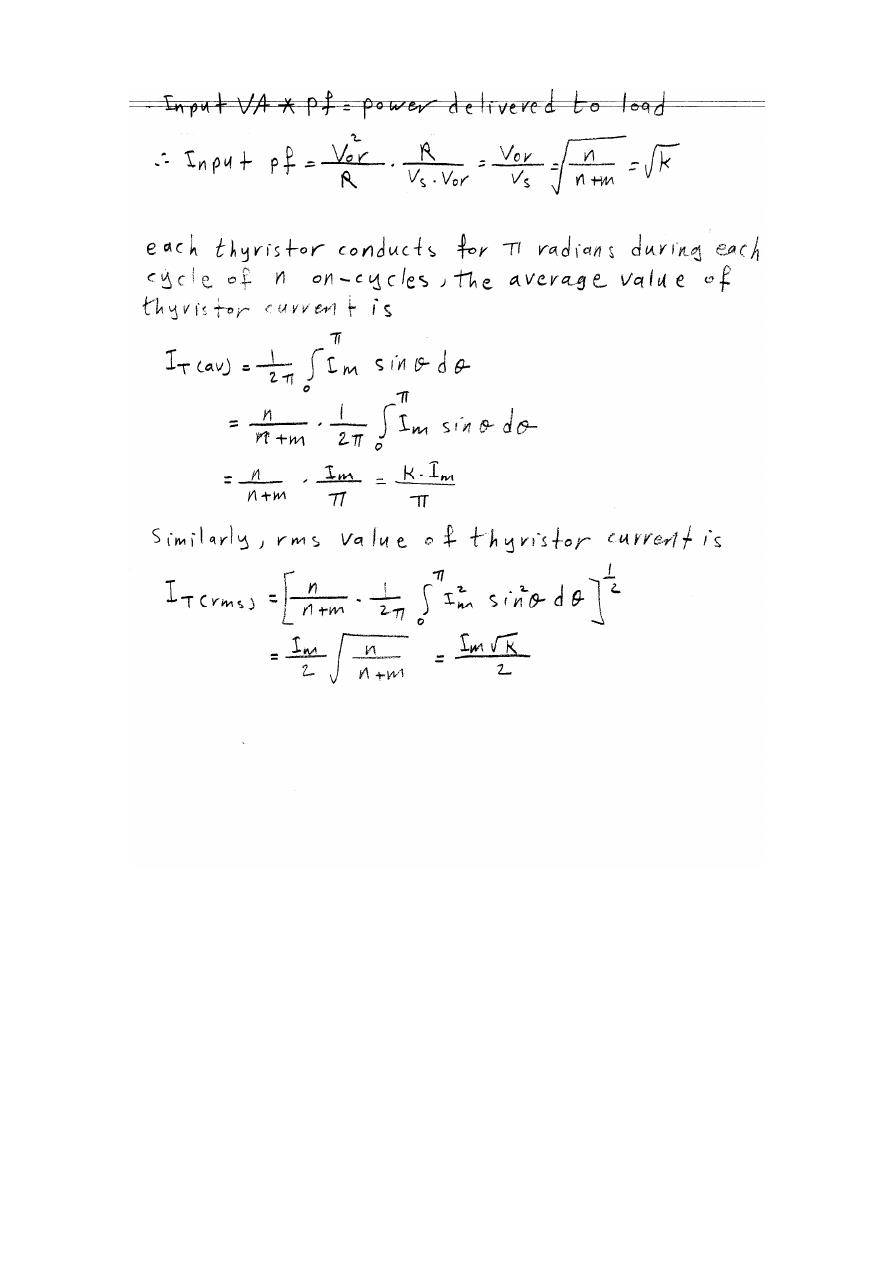 Input VA * pf = power delivered to load
∴ Input pf = Vor²/R · R/(Vs·Vor) = Vor/Vs = √(n/(n+m)) = √k
each thyristor conducts for π radians during each
cycle of n on-cycles, the average value of
thyristor current is
IT(av) = 1/2π ∫₀^π Im sinθ dθ
= n/(n+m) · 1/2π ∫₀^π Im sinθ dθ
= n/(n+m) · Im/π = k·Im/π
Similarly, rms value of thyristor current is
IT(rms) = [n/(n+m) · 1/2π ∫₀^π Im² sin²θ dθ]^1/2
= Im/2 √(n/(n+m)) = Im√k/2